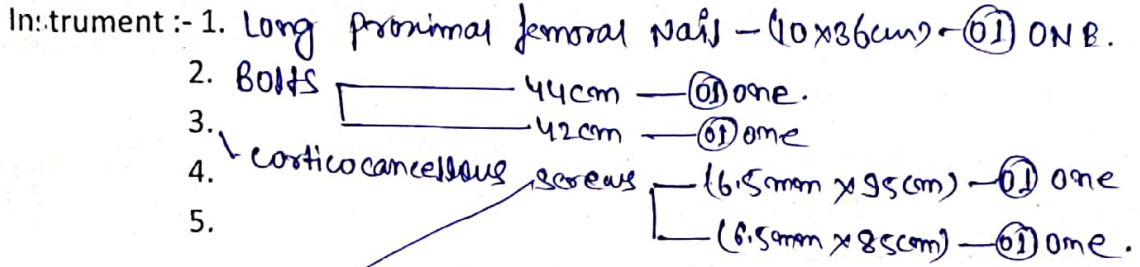 Instrument :- 1. Long proximal femoral Nail – (10x36cm) – 01 ONE.
2. Bolts 44cm — 01 one.
3. 42cm — 01 one
4. corticocancellous screws — (6.5mm x 95cm) — 01 one
5. — (6.5mm x 85cm) — 01 one.